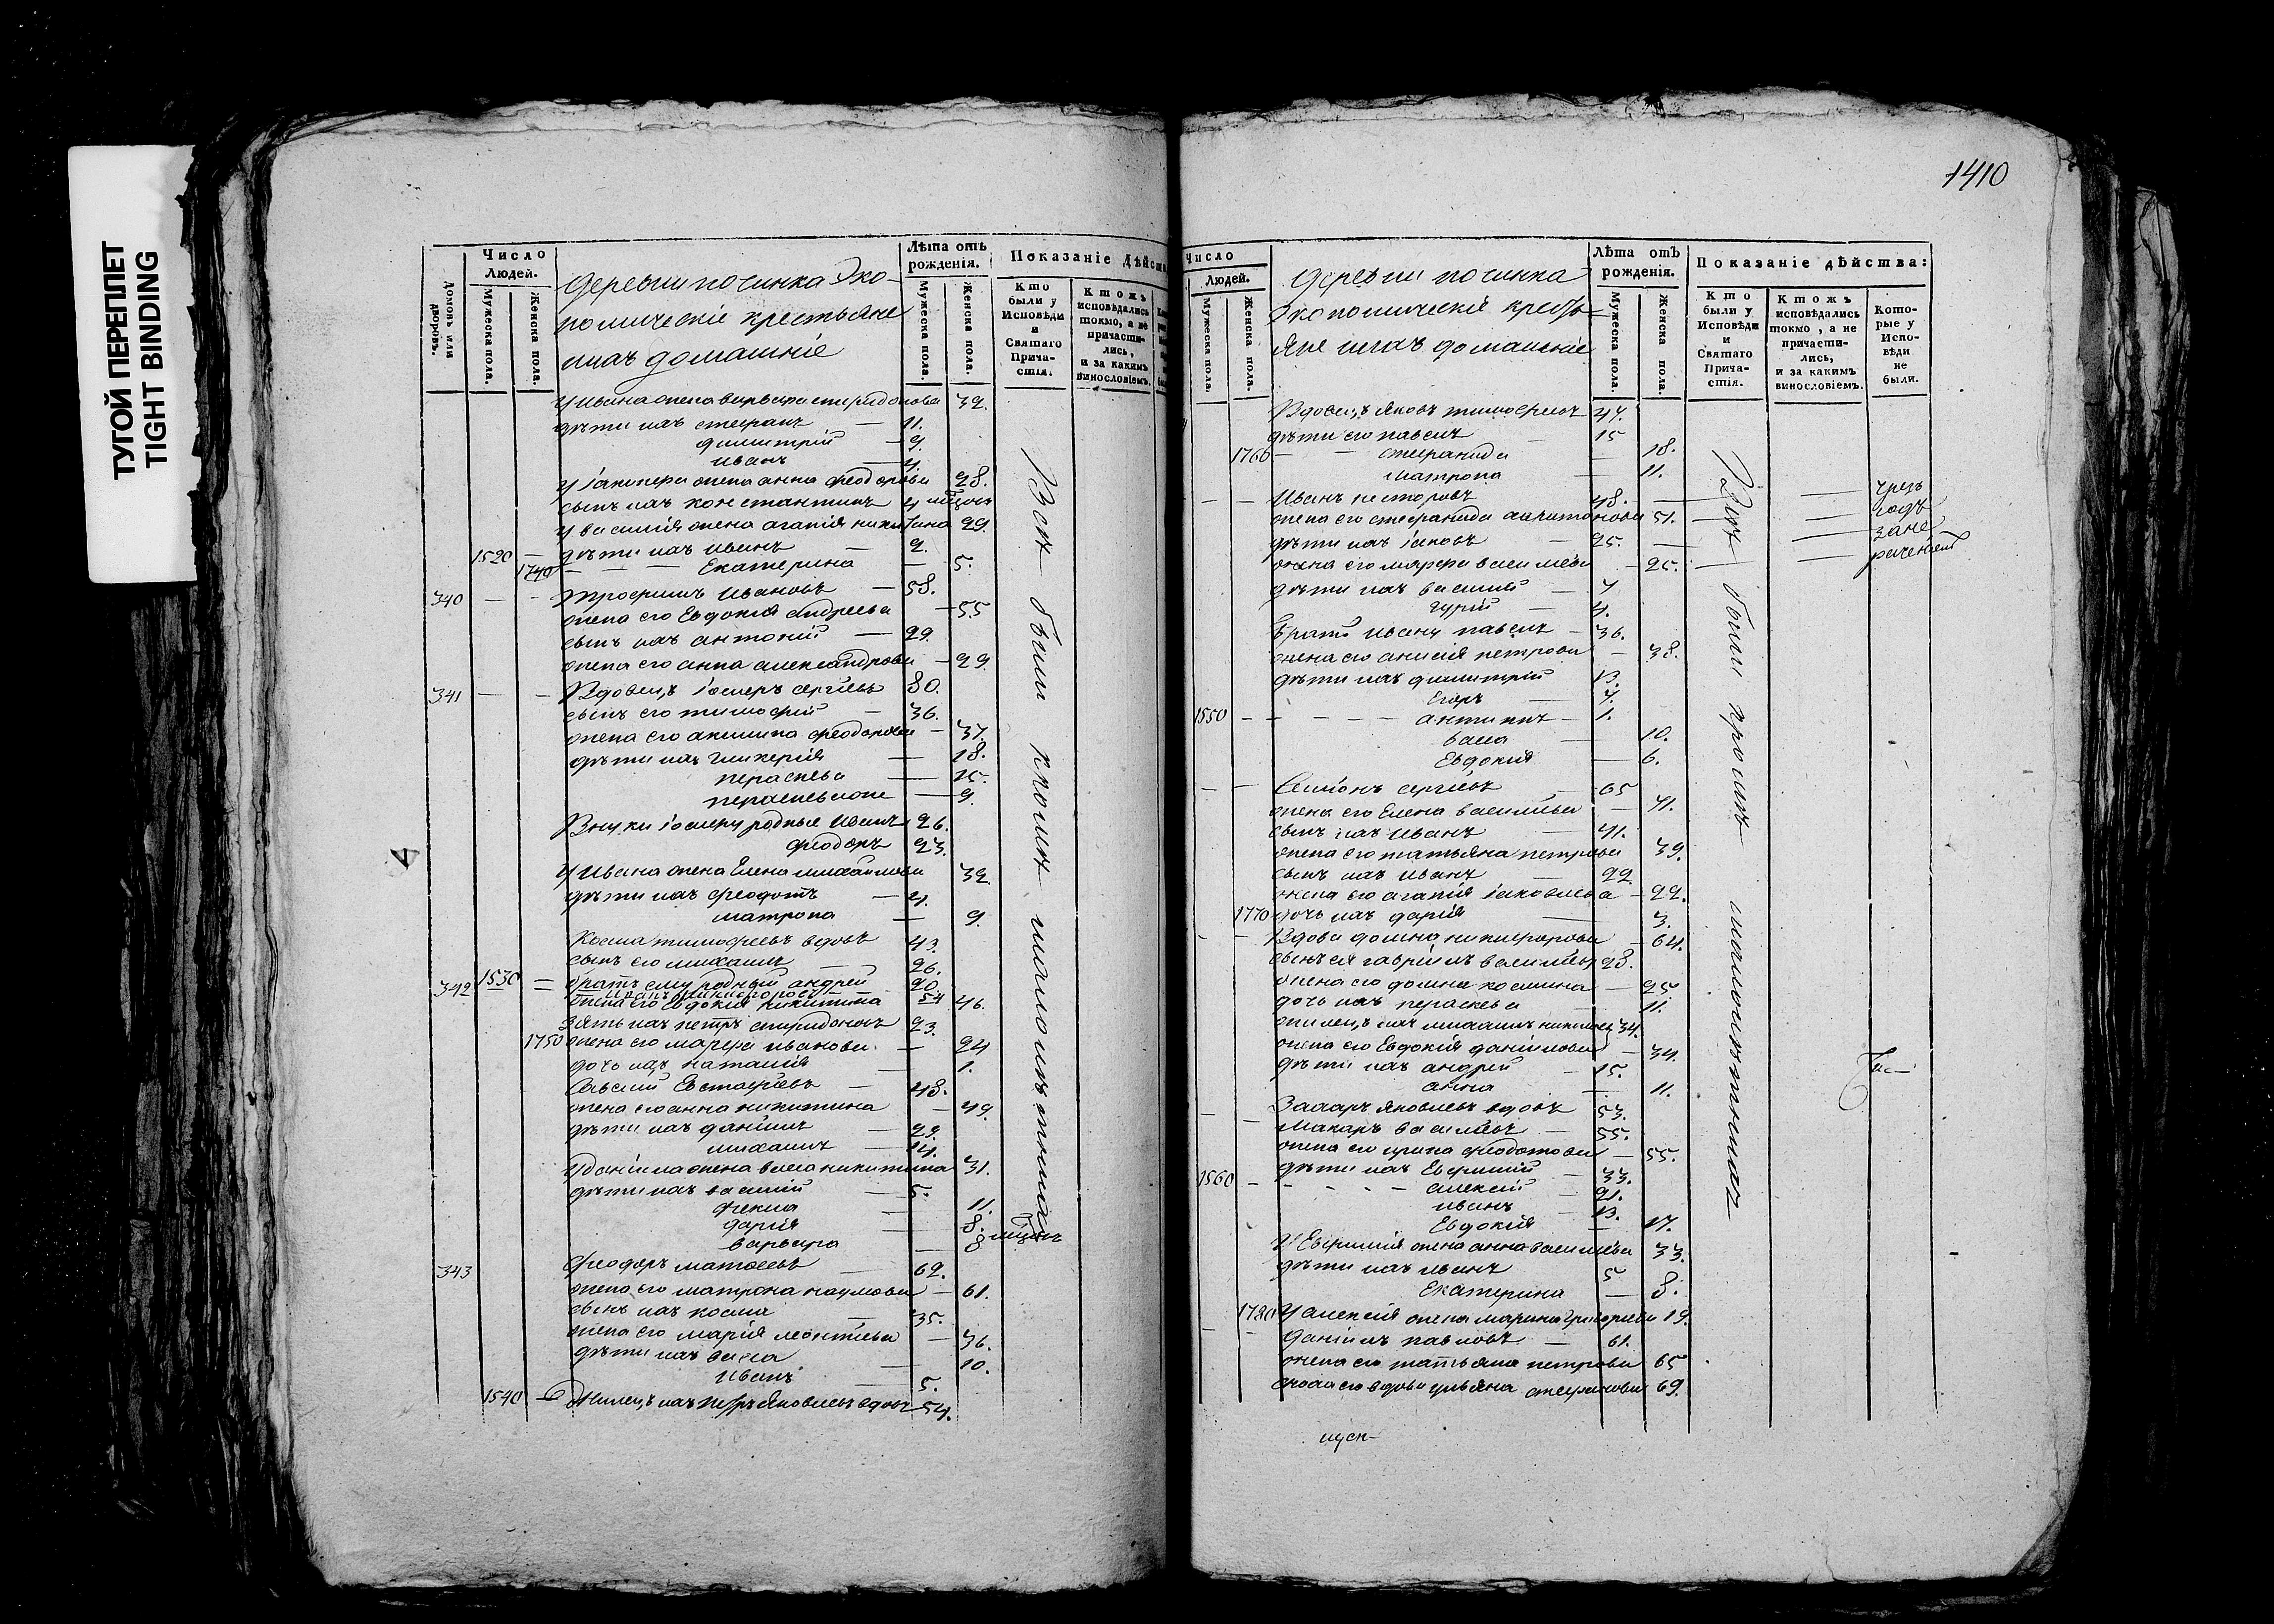 ТУГОЙ ПЕРЕПЛЕТ
TIGHT BINDING
1410
Домовъ или дворовъ.
Число Людей.
Мужеска пола.
Женска пола.
деревни починка Эко-
номическіе крестьяне
ихъ домашніе
Лѣта отъ рожденія.
Мужеска пола.
Женска пола.
Показаніе Дѣйств
Кто были у Исповѣди и Святаго Прича-стія.
Ктожъ исповѣдались токмо, а не причасти-лись, и за какимъ винословіемъ.
у Ивана жена варвара спиридонова 32.
дѣти ихъ стефанъ — 11.
димитрій — 9.
иванъ — 4.
жена анна феодорова 28.
сынъ ихъ константинъ 4
у василія жена агапія никитина 29.
1520 — дѣти ихъ иванъ — 2.
1740 — Екатерина — 5.
340 — — трофимъ ивановъ — 58.
жена его Евдокія андреева — 55
сынъ ихъ антоній — 29.
жена его анна александрова — 29.
341 — — Вдовецъ сергѣевъ 80.
сынъ его тимофей — 36.
жена его акилина феодорова — 37.
дѣти ихъ гликерія — 18.
параскева — 15.
9.
Внуки родные Иванъ 26.
феодоръ 23.
у Ивана жена Елена михайлова 32.
дѣти ихъ феодотъ — 4.
матрона — 9.
Косма тимофеевъ вдовъ 43.
сынъ его михаилъ — 26.
1530 — братъ ему родный андрей 20.
342 54
жена его Евдокія никитина 46.
зять ихъ петръ спиридоновъ 23.
1750 жена его марфа иванова — 24
дочь ихъ наталія — 1.
Евстафіевъ — 48.
жена его анна никитина — 49.
дѣти ихъ даніилъ — 29.
михаилъ — 14.
у даніила жена васса никитина 31.
дѣти ихъ василій — 5.
фекла — 11.
дарія — 8.
варвара — 8
343 феодоръ матѳеевъ — 62.
жена его матрона наумова — 61.
сынъ ихъ косма — 35.
жена его марія леонтіева — 36.
дѣти ихъ васса — 10.
иванъ — 5.
1540 — жилецъ ихъ петръ яковлевъ вдовъ 54.
Всѣ были кромѣ малолѣтнихъ
Число Людей.
Мужеска пола.
Женска пола.
деревни починка
Экономическія кресть-
яне ихъ домашніе
Лѣта отъ рожденія.
Мужеска пола.
Женска пола.
Показаніе дѣйства:
Кто были у Исповѣди и Святаго Прича-стія.
Ктожъ исповѣдались токмо, а не причасти-лись, и за какимъ винословіемъ.
Кото-рые у Испо-вѣди не были.
Вдовецъ яковъ тимофеевъ 44.
дѣти его павелъ 15
1760 — стефанида 18.
матрона — 11.
— — Иванъ несторовъ 48. —
жена его стефанида 51. —
дѣти ихъ іаковъ — 25. —
жена его марфа васильева — 25. —
дѣти ихъ василій — 7
гурій — 4.
братъ ивану павелъ — 36.
жена его анисія петрова — 38.
дѣти ихъ димитрій 13.
Егоръ — 7.
1550 — антипъ — 1.
васса — 10.
Евдокія — 6.
— — сергѣевъ — 65
жена его Елена васильева — 71.
сынъ ихъ иванъ — 41.
жена его татьяна петрова 39.
сынъ ихъ иванъ — 22
жена его агапія іаковлева — 22.
1770 дочь ихъ дарія — 3.
— — Вдова домна никифорова — 64.
сынъ ея гавріилъ васильевъ 28.
жена его домна космина — 25.
дочь ихъ параскева — 11.
жилецъ ихъ михаилъ 34.
жена его Евдокія даніилова — 34.
дѣти ихъ андрей — 15.
анна — 11.
— — Захаръ яковлевъ вдовъ 53.
— Макаръ васильевъ — 55.
жена его ирина феодотова — 55.
1560 дѣти ихъ Евфимій — 33.
— алексій — 21.
иванъ — 13.
Евдокія — 17.
У Евфимія жена анна васильева 33.
дѣти ихъ иванъ 5
Екатерина — 8.
1780 у алексія жена марина григорьева 19.
— — даніилъ павловъ — 61.
жена его татьяна петрова 65
сноха его вдова ульяна стефанова 69.
были кромѣ малолѣтнихъ
чрезъ
годъ
зане
раченіемъ